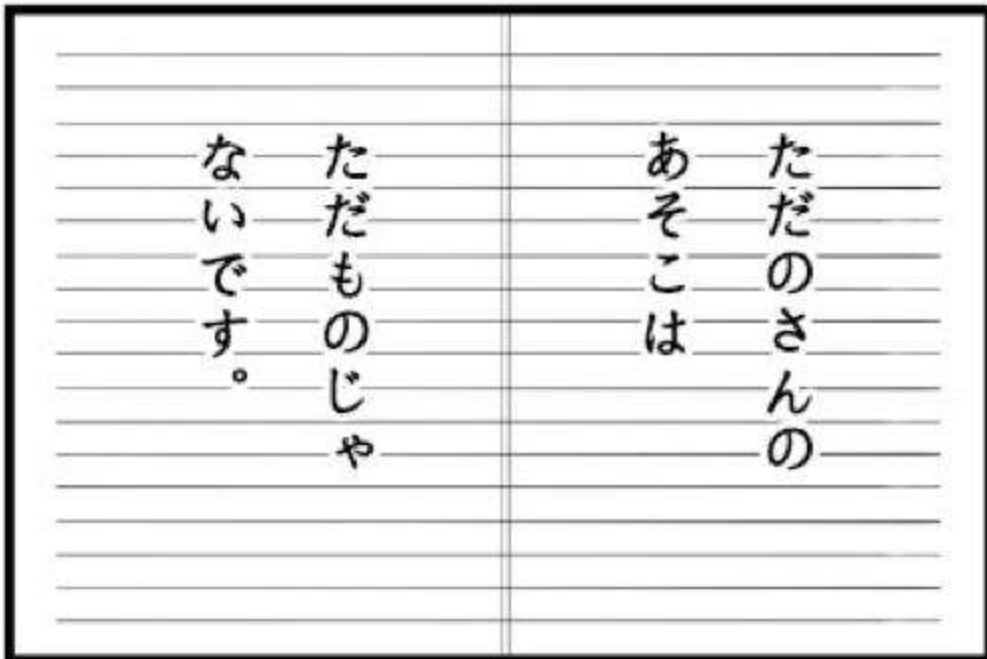 ただのさんの
あそこは
ただものじゃ
ないです。